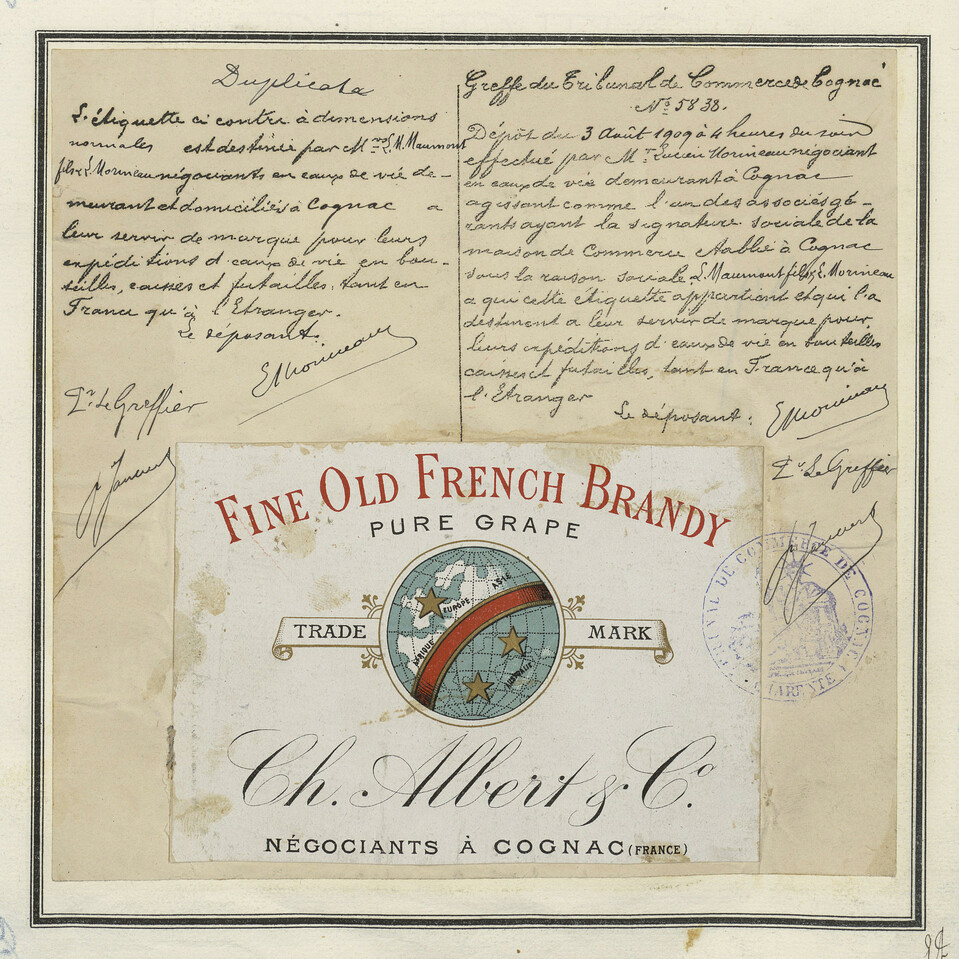 Duplicata
L'étiquette ci contre à dimensions
normales est destinée par Mrs L. M. Maumont
fils & L. Morineau négociants en eaux de vie de-
meurant et domiciliés à Cognac a
leur servir de marque pour leurs
expéditions d'eaux de vie en bou-
teilles, caisses et futailles, tant en
France qu'à l'Etranger.
Le déposant.
LMorineau
Pr. Le Greffier
Greffe du Tribunal de Commerce de Cognac
No 5838.
Dépôt du 3 Août 1909 à 4 heures du soir
effectué par Mr Lucien Morineau négociant
en eaux de vie demeurant à Cognac
agissant comme l'un des associés gé-
rants ayant la signature sociale de la
maison de Commerce établie à Cognac
sous la raison sociale L. Maumont fils & L. Morineau
a qui cette étiquette appartient et qui l'a
destinent a leur servir de marque pour
leurs expéditions d'eaux de vie en bouteilles
caisses et futailles, tant en France qu'à
l'Etranger
Le déposant: LMorineau
Pr Le Greffier
FINE OLD FRENCH BRANDY
PURE GRAPE
EUROPE ASIE
AFRIQUE
AUSTRALIE
TRADE MARK
Ch. Albert & Co.
NÉGOCIANTS À COGNAC (FRANCE)
TRIBUNAL DE COMMERCE DE COGNAC
CHARENTE